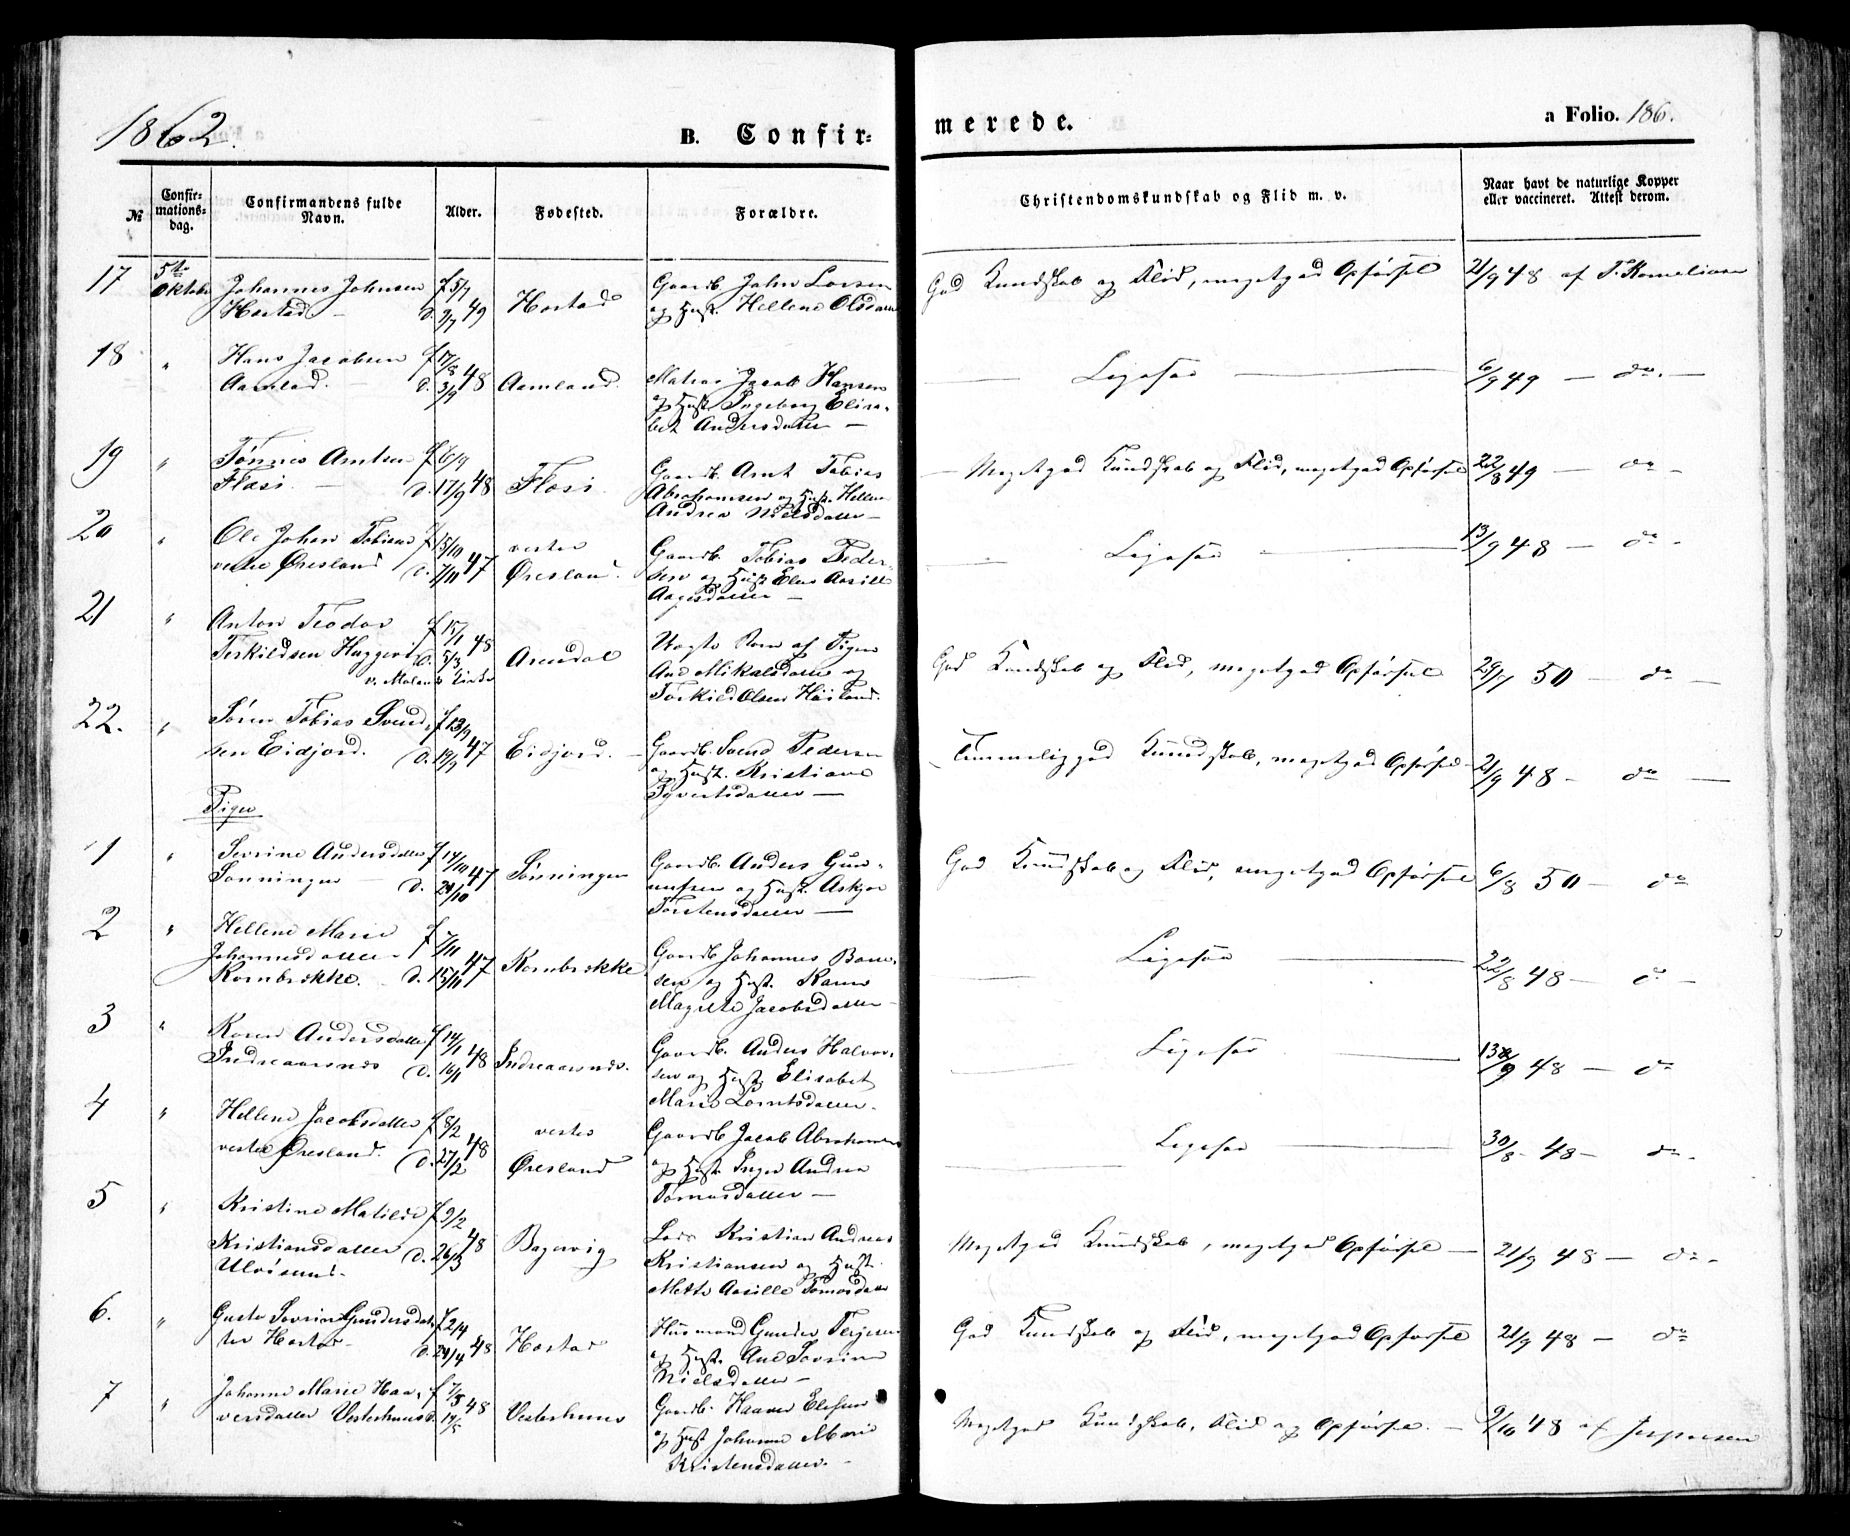 1862.
B. Confirmerede.
a Folio. 186.
№
Confirmationsdag.
Confirmandens fulde Navn.
Alder.
Fødested.
Forældre.
Christendomskundskab og Flid m. v.
Naar havt de naturlige Kopper eller vaccineret. Attest derom.
17
5te Oktober
Johannes Johnsen
Hostad
f 5/7
d. 9/7 49
Hostad
Gaardb. John Larsen
og Hust. Hellene Olsdatter
God Kundskab og Flid, megetgod Opførsel
21/9 48 af T. Kornelius
18
"
Hans Jacobsen
Aamland.
f 17/8
d. 3/9 48
Aamland.
Matros Jacob Hansen
og Hust. Ingeborg Elisa-
bet Andersdatter —
— Ligesaa —
6/9 49 — do. —
19
"
Tønnes Arntsen
Flosi.
f 6/9
d. 17/9 48
Flosi.
Gaardb. Arnt Tobias
Abrahamsen og Hust. Hellene
Andrea Nilsdatter —
— Megetgod Kundskab og Flid, megetgod Opførsel
22/8 49 — do —
20
"
Ole Johan Tobias
vestre Øresland
f 15/10
d. 7/11 47
vestre
Øresland.
Gaardb. Tobias Peder-
sen og Hust. Elen Aasille
Aagesdatter —
— Ligesaa —
13/9 48 — do —
21
"
Anton Teodor
Terkildsen
f 15/1
d. 5/3 48
Arendal
Uægte Barn af Pigen
Ane Mikalsdatter og
Torkild Olsen
God Kundskab og Flid, megetgod Opførsel
29/7 50 — do —
22.
"
Søren Tobias Svend-
sen Eidjord.
f 13/9
d. 19/9 47
Eidjord.
Gaardb. Svend Pedersen
og Hust. Kristiane
Syvertsdatter —
Temmeliggod Kundskab, megetgod Opførsel
21/9 48 — do —
Piger
1
"
Severine Andersdatter f 14/10
Sønningen — d. 24/10 47
Sønningen
Gaardb. Anders Gun-
nufsen og Hust. Askjer
Torstensdatter —
God Kundskab og Flid, megetgod Opførsel
6/8 50 — do
2
"
Hellene Marie
Johannesdatter
Kornbrekke.
f 7/11
d. 15/11 47
Kornbrekke
Gaardb. Johannes
sen og Hust. Karen
Magrete Jacobsdatter —
— Ligesaa —
22/8 48 — do —
3
"
Karen Andersdatter
Indreaarsnes
f 14/1
d. 16/1 48
Indreaarsnes.
Gaardb. Anders Halvor-
sen og Hust. Elisabet
Marie Lorntsdatter.
Ligesaa
13/9 48 — do
4
"
Hellene Jacobsdatter
vestre Øresland.
f 8/2
d. 27/2 48
vestre
Øresland
Gaardb. Jacob Abrahamsen
og Hust. Inger Andrea
Tomasdatter —
Ligesaa
30/8 48 — do —
5
"
Kristine Matilde
Kristiansdatter
Ulvøsund.
f 9/2
d. 26/3 48
Bagervig
Lods Kristian Andreas
Kristiansen og Hust.
Mette Aasille Tomasdatter
Megetgod Kundskab, megetgod Opførsel —
21/9 48 — do —
6.
"
Guste Sevrine Gundersdat-
ter Hostad —
f 2/4
d. 24/4 48
Hostad
Husmand Gunder Terjesen
og Hust. Ane Sevrine
Nielsdatter —
God Kundskab og Flid, megetgod Opførsel
21/9 48 — do
7
"
Johanne Marie Haa-
versdatter Vesterhuus
f 7/5
d. 14/5 48
Vesterhuus
Gaardb. Haaver Elefsen
og Hust Johanne Marie
Kristensdatter. —
Megetgod Kundskab, Flid og Opførsel. —
9/10 48 af Jespersen